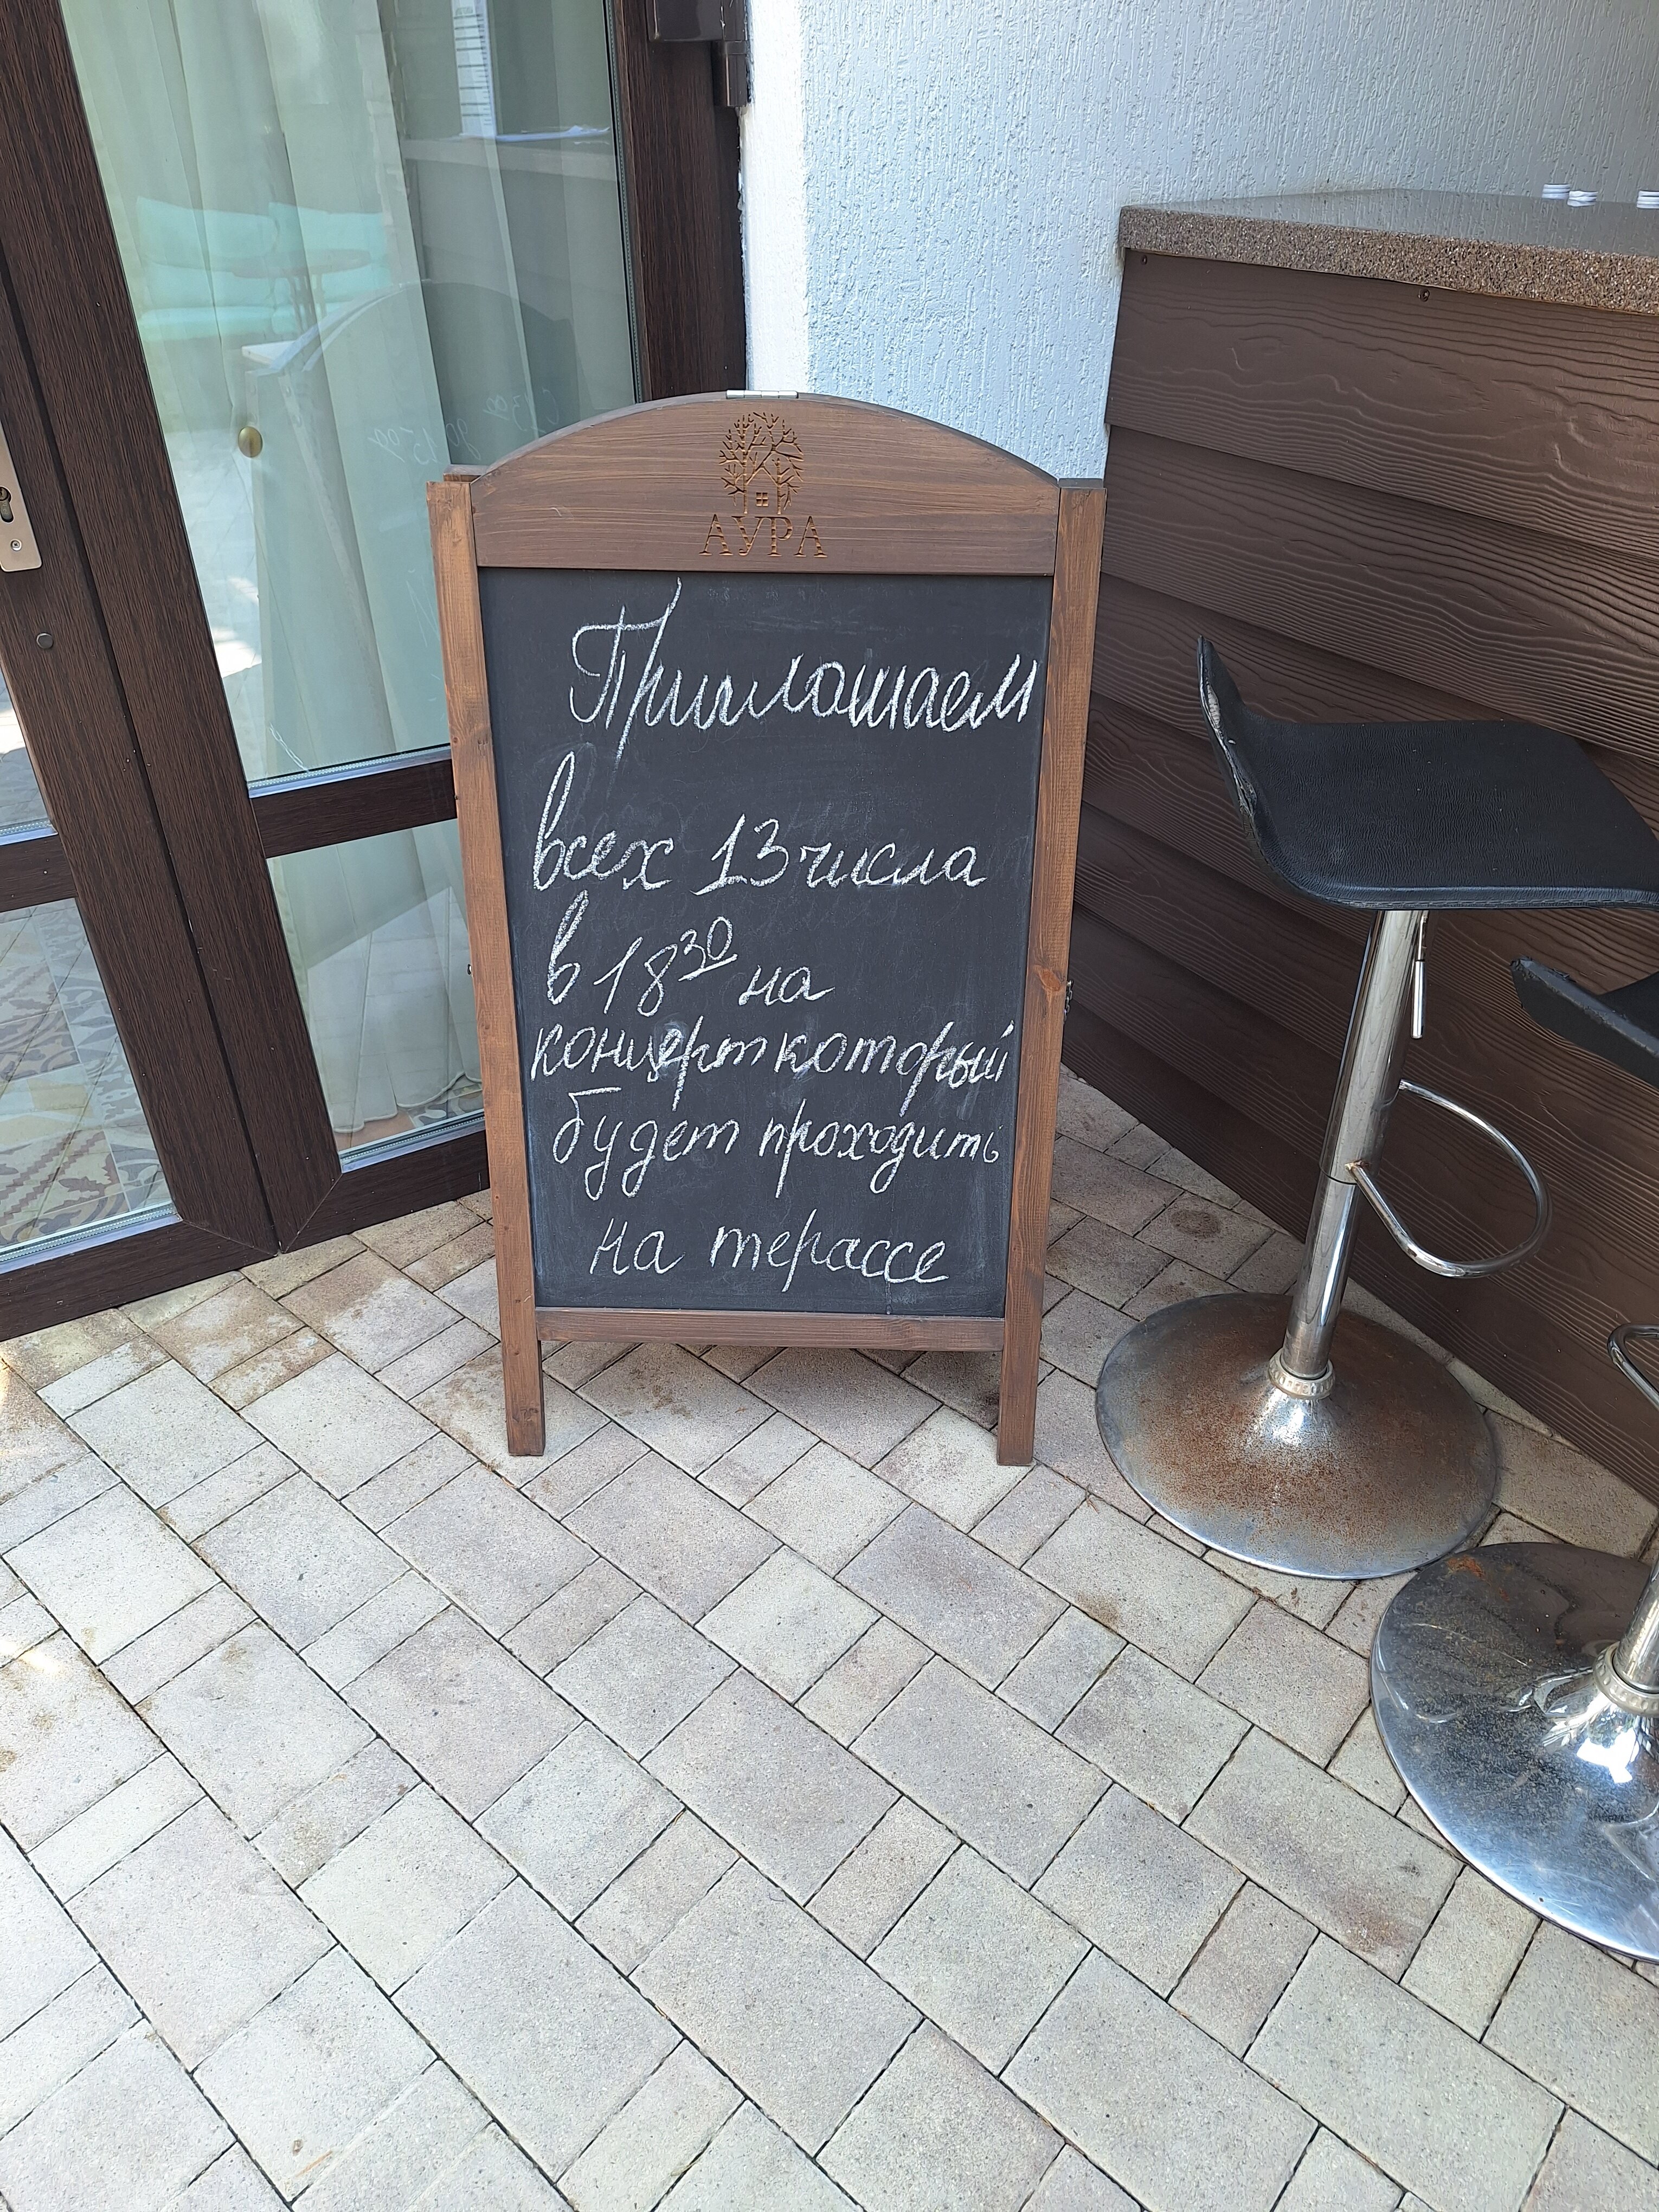 АУРА
Приглашаем
всех 13 числа
в 18 30 на
концерт который
будет проходить
на терассе